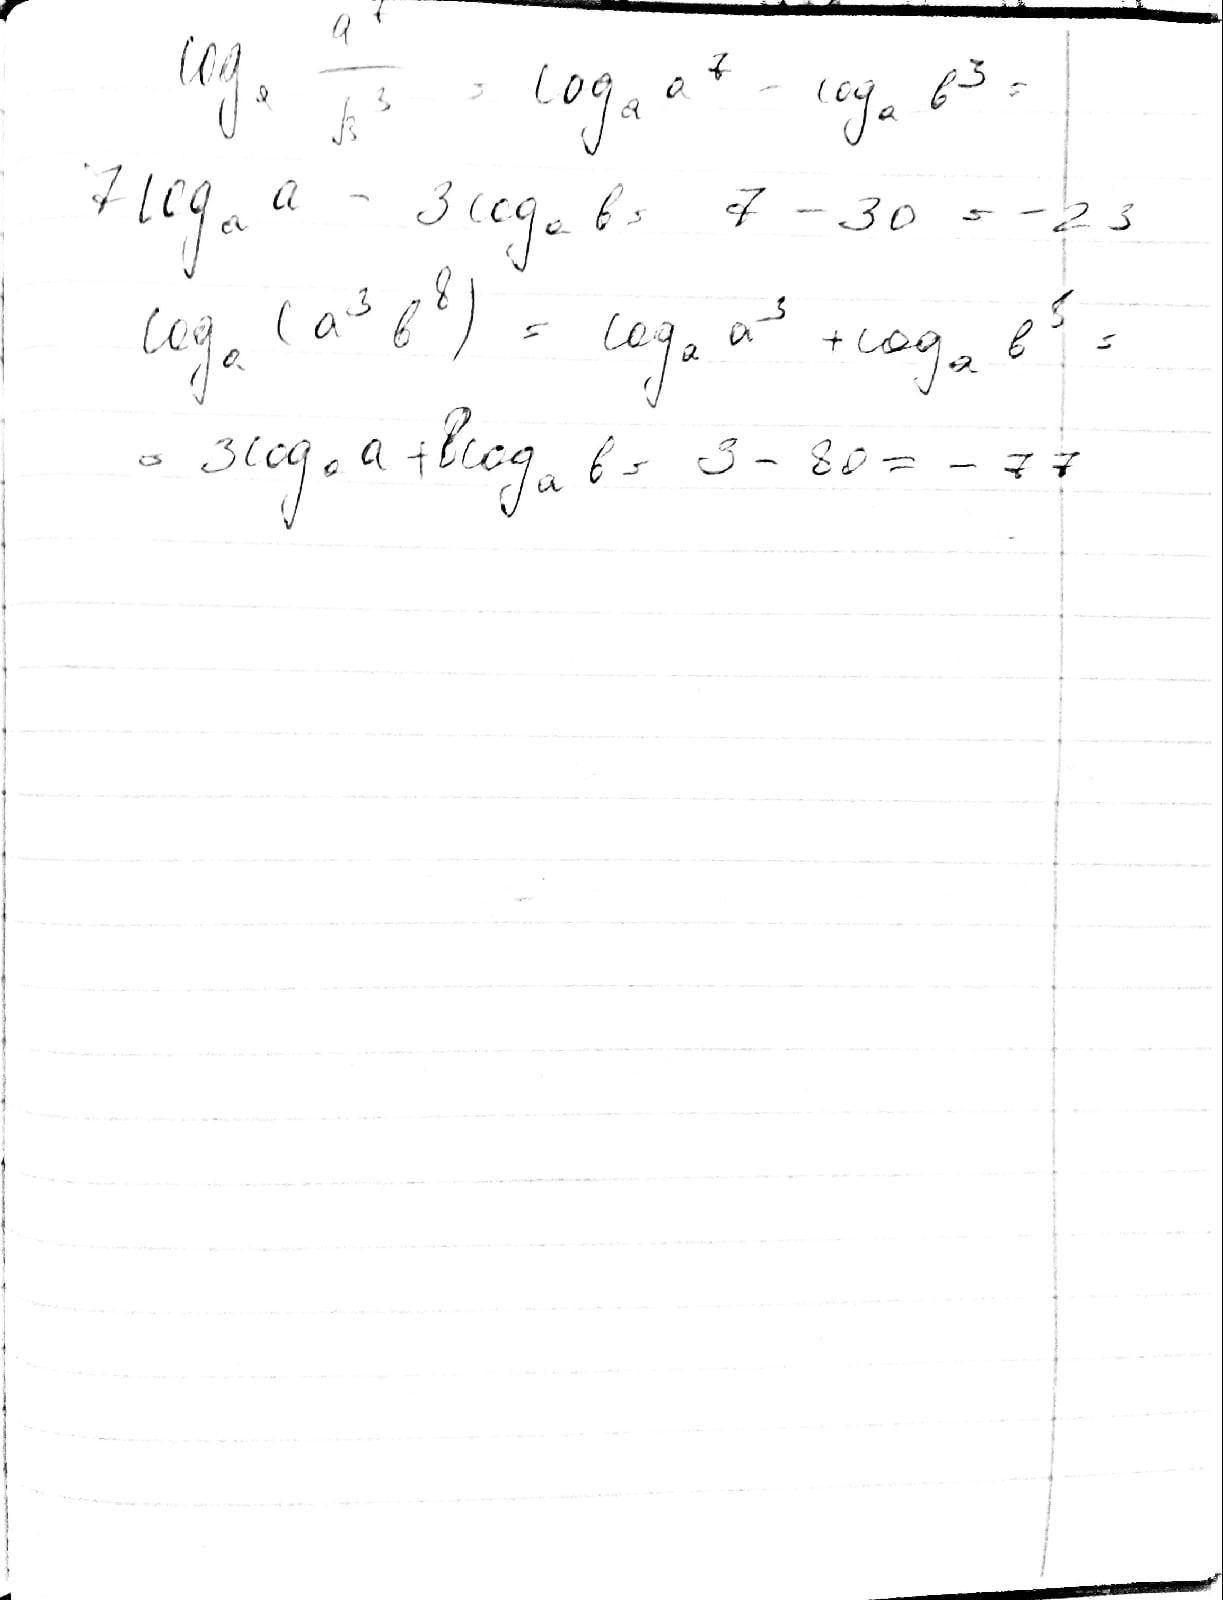 logₐ a⁷/b³ = logₐ a⁷ - logₐ b³ =
7logₐ a - 3logₐ b = 7 - 30 = -23
logₐ (a³ b⁸) = logₐ a³ + logₐ b⁸ =
= 3logₐ a + 8logₐ b = 3 - 80 = - 77